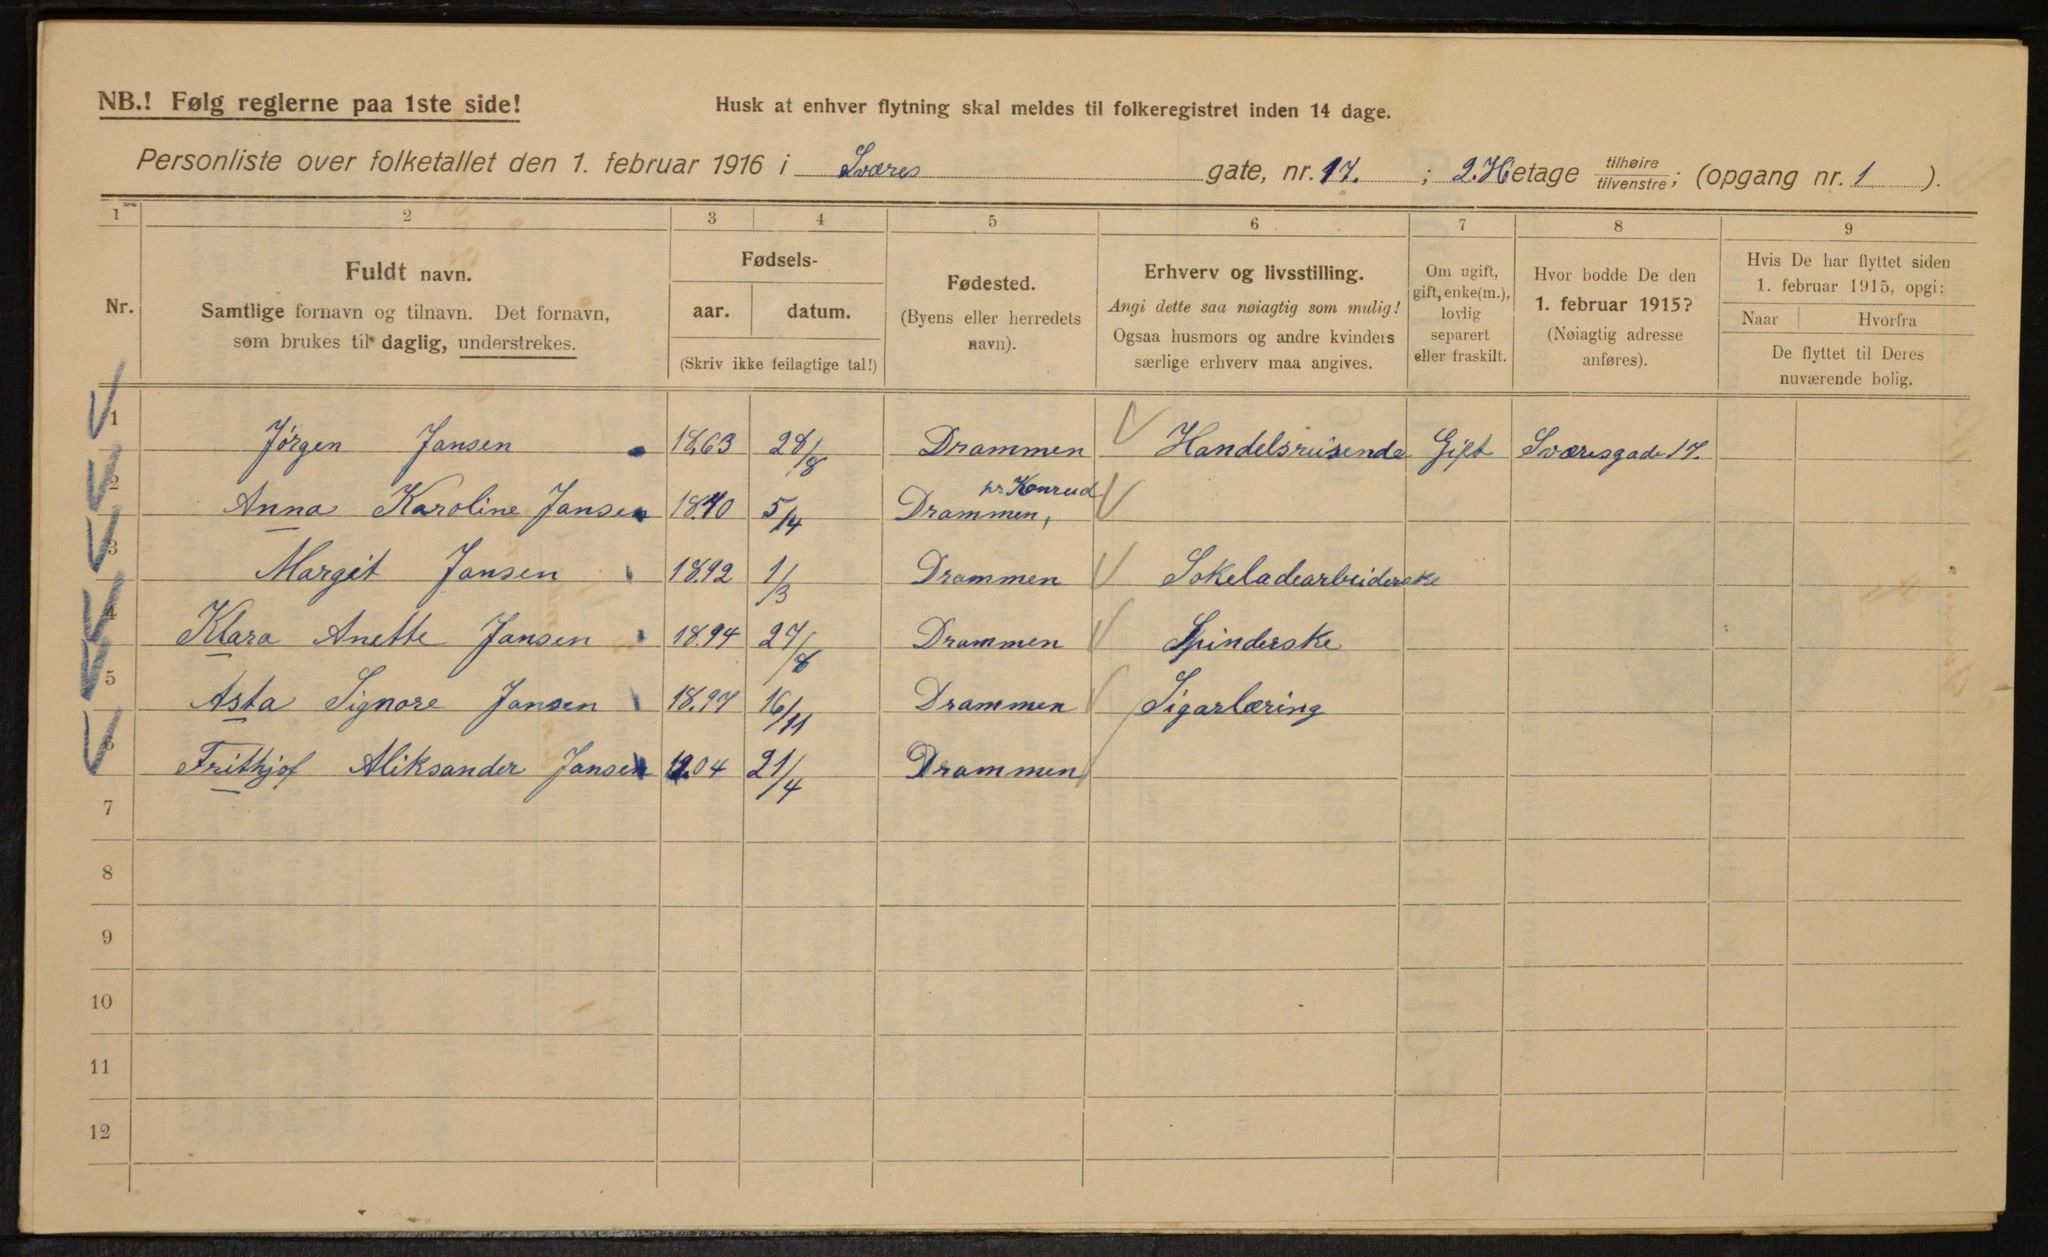 NB.! Følg reglerne paa 1ste side!
Husk at enhver flytning skal meldes til folkeregistret inden 14 dage.
Personliste over folketallet den 1. februar 1916 i Sværes gate, nr. 17. ; 2. H etage tilhøire/tilvenstre; (opgang nr. 1 ).
1 2 3 4 5 6 7 8 9
Nr.
Fuldt navn.
Samtlige fornavn og tilnavn. Det fornavn,
som brukes til daglig, understrekes.
Fødsels-
aar. datum.
(Skriv ikke feilagtige tal!)
Fødested.
(Byens eller herredets
navn).
Erhverv og livsstilling.
Angi dette saa nøiagtig som mulig!
Ogsaa husmors og andre kvinders
særlige erhverv maa angives.
Om ugift,
gift, enke(m.),
lovlig
separert
eller fraskilt.
Hvor bodde De den
1. februar 1915?
(Nøiagtig adresse
anføres).
Hvis De har flyttet siden
1. februar 1915, opgi:
Naar Hvorfra
De flyttet til Deres
nuværende bolig.
1 Jørgen Jansen 1863 28/8 Drammen Handelsreisende Gift Sværesgade 17.
2 Anna Karoline Jansen 5/4 Drammen,
3 Margit Jansen 1892 1/3 Drammen Sokeladearbeiderske
4 Klara Anette Jansen 18.94 27/8 Drammen Spinderske
5 Asta Signore Jansen 18.97 16/11 Drammen Sigarlæring
6 Frithjof Aliksander Jansen 19.04 21/4 Drammen
7
8
9
10
11
12